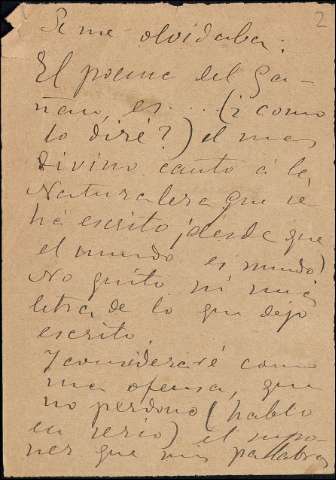 2
Se me olvidaba:
El poema del Ga-
ñan, es... (¿como
lo diré?) el mas
divino canto á la
Naturaleza que se
ha escrito ¡desde que
el mundo es mundo!
No quito ni una
letra de lo que dejo
escrito.
Y consideraré como
una ofensa, que
no perdono (hablo
en serio) el supo-
ner que mis palabras